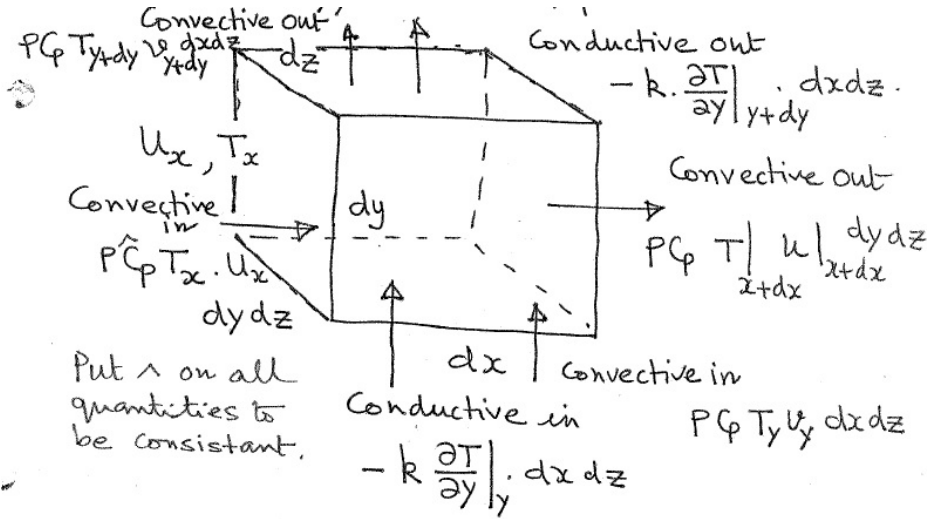 Convective out
PCp Ty+dy vy+dy dxdz
dz
Conductive out
- k. ∂T/∂y|y+dy . dxdz.
Ux, Tx
Convective in
PĈp Tx . Ux
dydz
dy
Convective out
PCp T|x+dx u|x+dx dydz
Put ^ on all
quantities to
be consistant.
dx
Convective in
PCp Ty vy dxdz
Conductive in
- k ∂T/∂y|y . dx dz